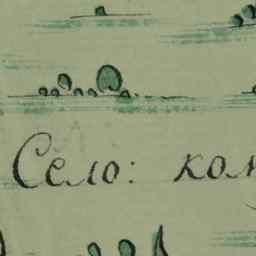 Село: ком